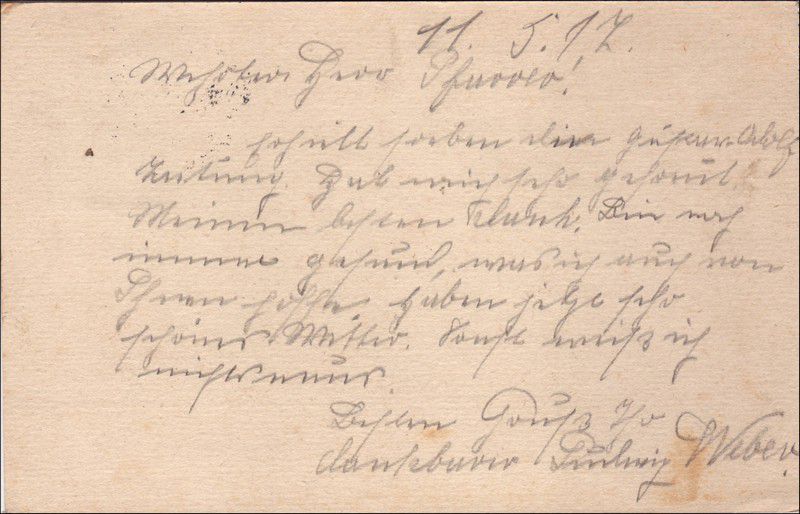 11. 5. 17.
Wehrter Herr Pfarrer!
Erhielt soeben die Gustav Adolf
Zeitung. Hat mich sehr gefreut.
Meinen besten Dank. Bin noch
immer gesund, was ich auch von
Ihnen hoffe. Haben jetzt sehr
schönes Wetter. Sonst weiß ich
nichts neues.
Besten Gruß Ihr
dankbarer Ludwig Weber.